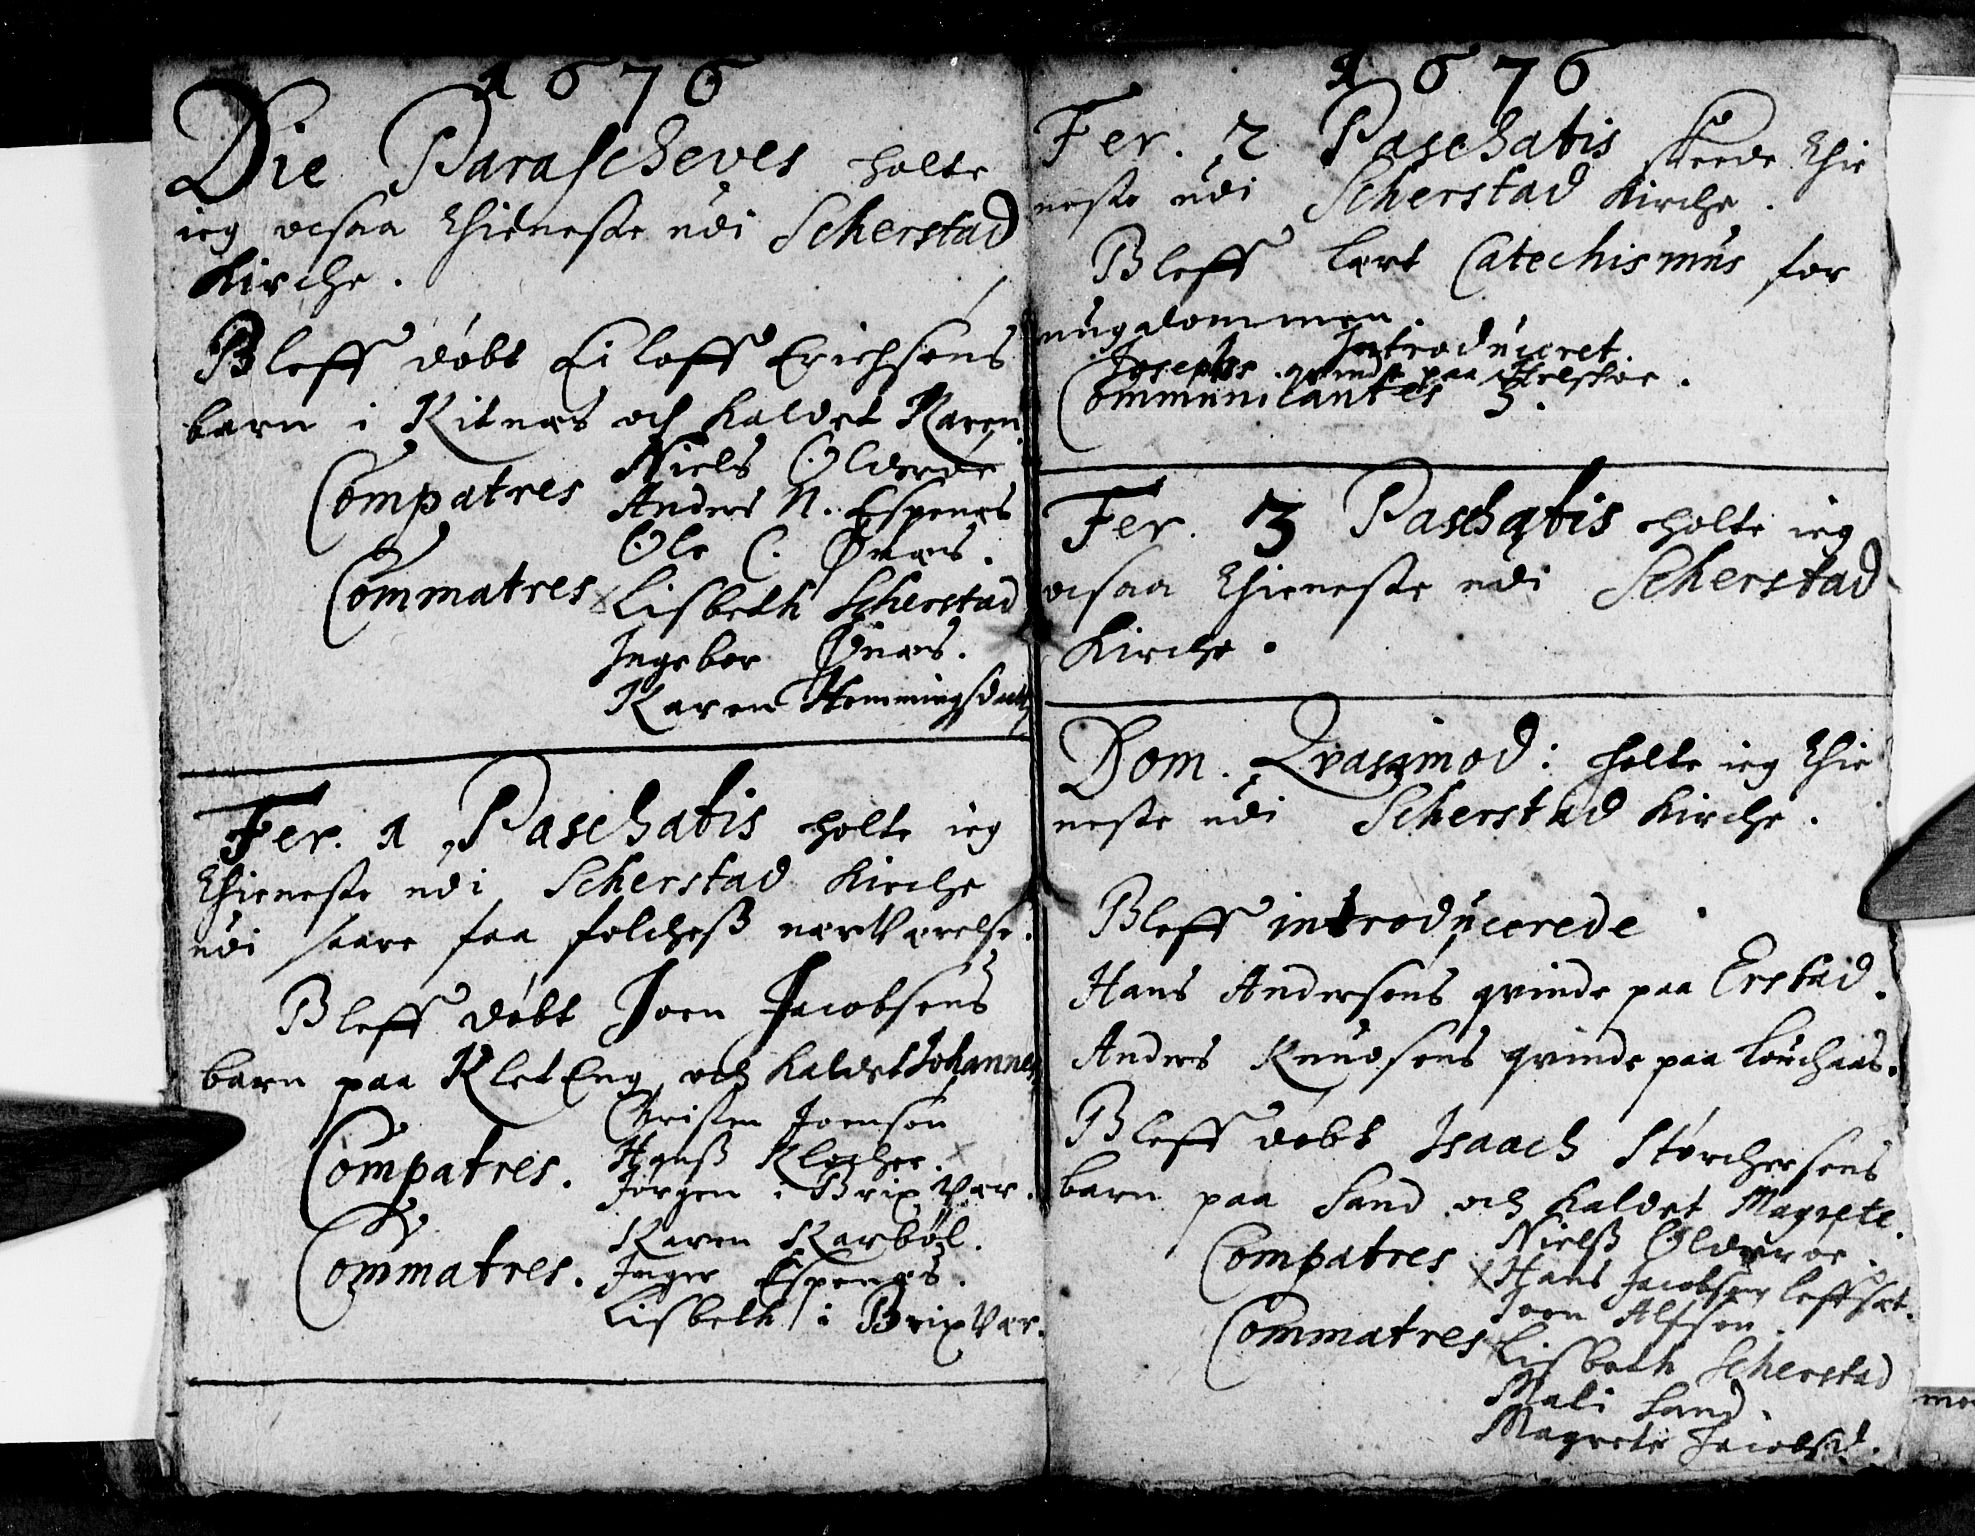 1676
Die Parascheves holte
ieg ocsaa thieneste udi Scherstad
Kirche.
Bleff döbt Eiloff Erichsens
barn i Ritnæs och kaldet Karen
Compatres Niels Olderöe
Anders N. Espenæs
Ole C. Ønæs.
Commatres Lisbeth Scherstad
Ingebor Ønæs.
Karen Hemmingsdatt
Fer. 1 Paschatis holte ieg
thieneste udi Scherstad Kirche
udi saare faa folcheß nærværelse.
Bleff döbt Joen Jacobsens
barn paa KletEng, och kaldet Johannes
Christen Joensön
Compatres. Hanß Klocher.
Jörgen i Brixvær.
Karen Karböl.
Commatres. Inger Espenæs.
Lisbeth i Brixvær.
1676
Fer. 2 Paschatis skeede thie
neste udi Scherstad Kirche.
Bleff lært Catechismus for
ungdommen.
Introduceret.
Josephs qvinde paa
Communicantes 3.
Fer. 3 Paschatis holte ieg
ocsaa thieneste udi Scherstad
Kirche.
Dom. Qvasimod: holte ieg thie
neste udi Scherstad Kirche.
Bleff introducerede
Hans Andersöns qvinde paa Erstad.
Anders Knudsens qvinde paa Louchaas.
Bleff döbt Isaach Störchersens
barn paa Sand och kaldet Magrete.
Compatres Nielß Olderöe.
Hans Jacobsen Leffset.
Joen Alfsön.
Commatres Lisbeth Scherstad
Mali Sand.
Magrete Jacobsd.